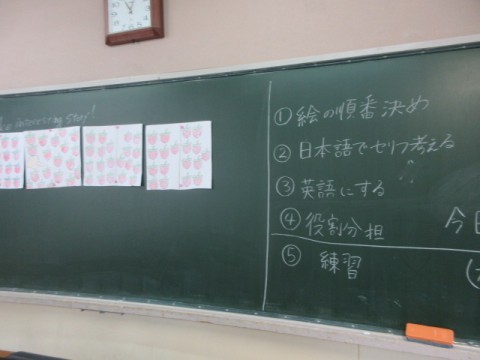 interesting story!
① 絵の順番決め
② 日本語でセリフ考える
③ 英語にする
④ 役割分担
今
⑤ 練習